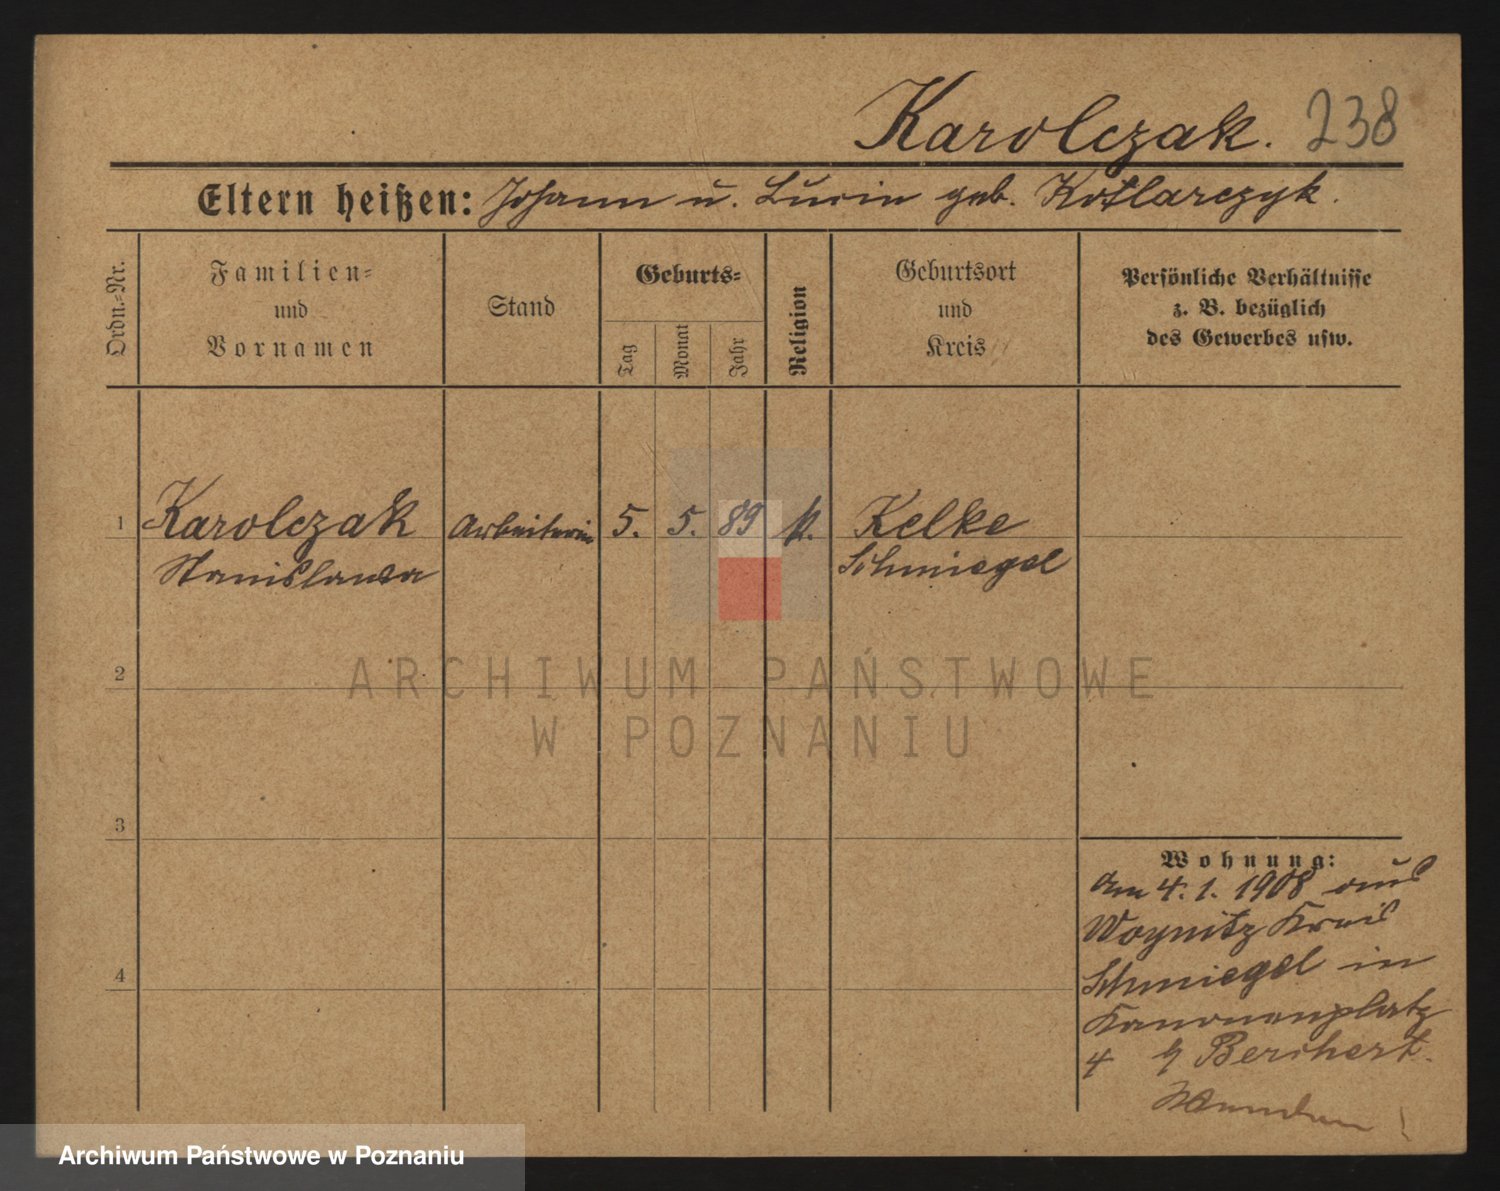 Karolczak. 238
Eltern heißen: Johann u. Lucia geb. Kotlarczyk.
Ordn.-Nr.
Familien-
und
Vornamen
Stand
Geburts-
Tag
Monat
Jahr
Religion
Geburtsort
und
Kreis
Persönliche Verhältnisse
z. B. bezüglich
des Gewerbes usw.
1 Karolczak Arbeiterin 5. 5. 89 k. Kelke
Stanislawa Schmiegel
2
ARCHIWUM PAŃSTWOWE
W POZNANIU
3
Wohnung:
Am 4. 1. 1908 aus
Woynitz Kreis
4
Schmiegel in
Kanonenplatz
4 b/ Berchert.
Wenden!
Archiwum Państwowe w Poznaniu